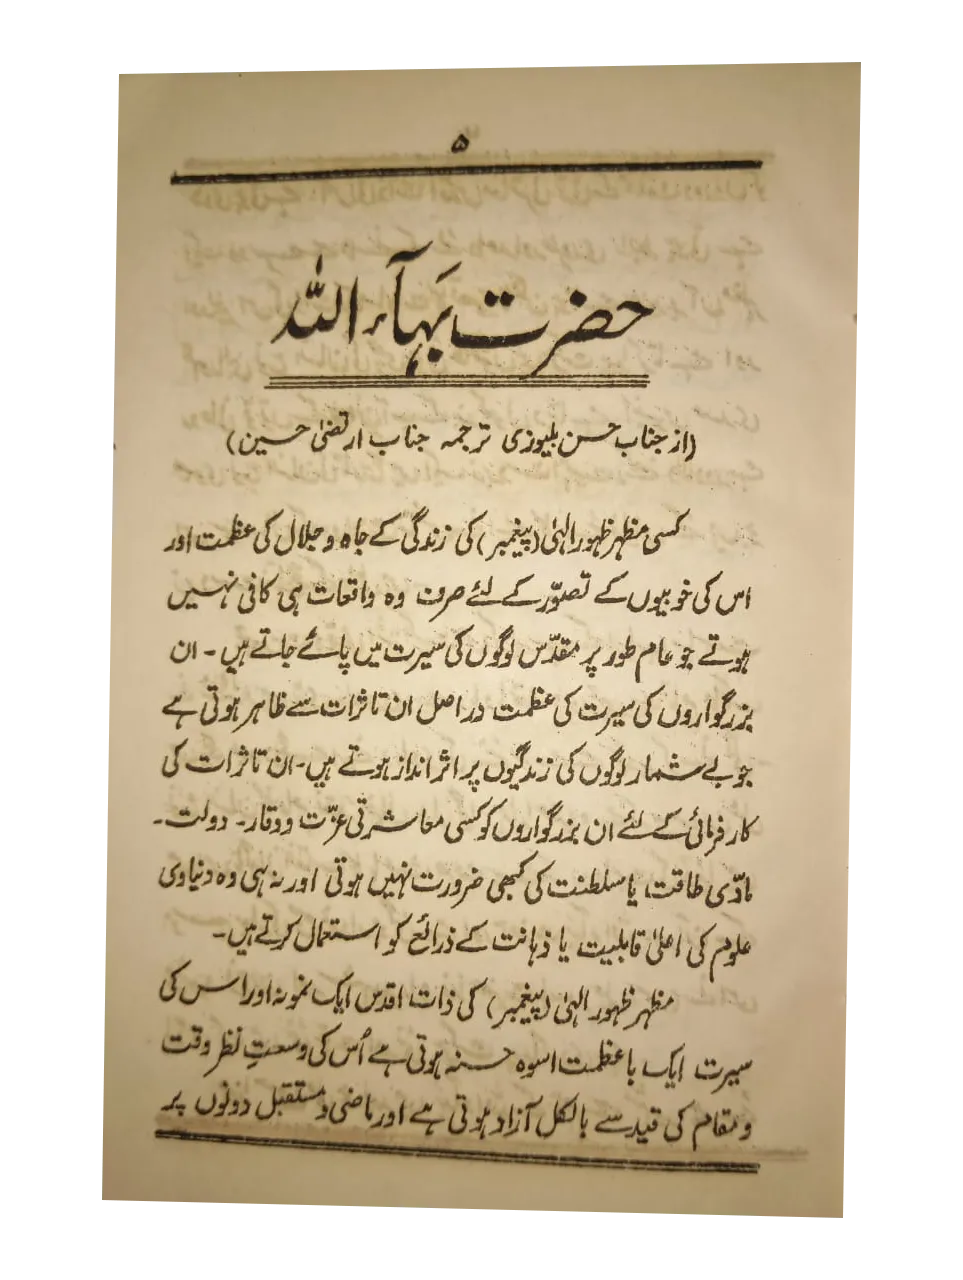 ۵
حضرت بہآء اللہ
(از جناب حسن بلیوزی ترجمہ جناب ارتضیٰ حسین)
کسی مظہر ظہور الہٰی (پیغمبر) کی زندگی کے جاہ و جلال کی عظمت اور
اس کی خوبیوں کے تصوّر کے لئے صرف وہ واقعات ہی کافی نہیں
ہوتے جو عام طور پر مقدّس لوگوں کی سیرت میں پائے جاتے ہیں ۔ ان
بزرگواروں کی سیرت کی عظمت دراصل ان تاثرات سے ظاہر ہوتی ہے
جو بے شمار لوگوں کی زندگیوں پر اثر انداز ہوتے ہیں۔ ان تاثرات کی
کارفرمائی کے لئے ان بزرگواروں کو کسی معاشرتی عزّت و وقار۔ دولت ۔
مادّی طاقت یا سلطنت کی کبھی ضرورت نہیں ہوتی اور نہ ہی وہ دنیاوی
علوم کی اعلیٰ قابلیت یا ذہانت کے ذرائع کو استعمال کرتے ہیں۔
مظہر ظہور الہٰی (پیغمبر) کی ذات اقدس ایک نمونہ اور اس کی
سیرت ایک باعظمت اسوہ حسنہ ہوتی ہے اُس کی وسعتِ نظر وقت
و مقام کی قید سے بالکل آزاد ہوتی ہے اور ماضی و مستقبل دونوں پر